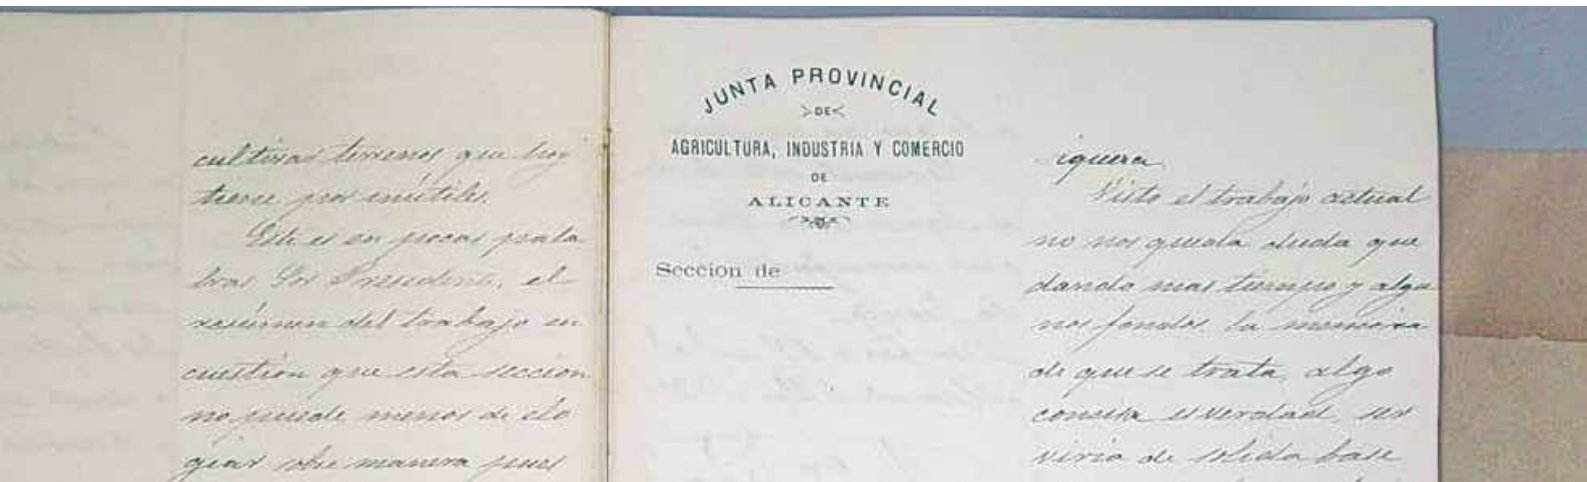 cultivar terrenos que hoy
tiene por inútiles.
Este es en pocas pala
bras Sor Presidente, el
resúmen del trabajo en
cuestion que esta seccion
no puede menos de elo
giar sobre manera pues
JUNTA PROVINCIAL
DE
AGRICULTURA, INDUSTRIA Y COMERCIO
DE
ALICANTE
Seccion de
iquera.
Visto el trabajo actual
no nos queda duda que
dando mas tiempo y algu
nos fondos la memoria
de que se trata, algo
concisa es verdad, ser
viria de solida base